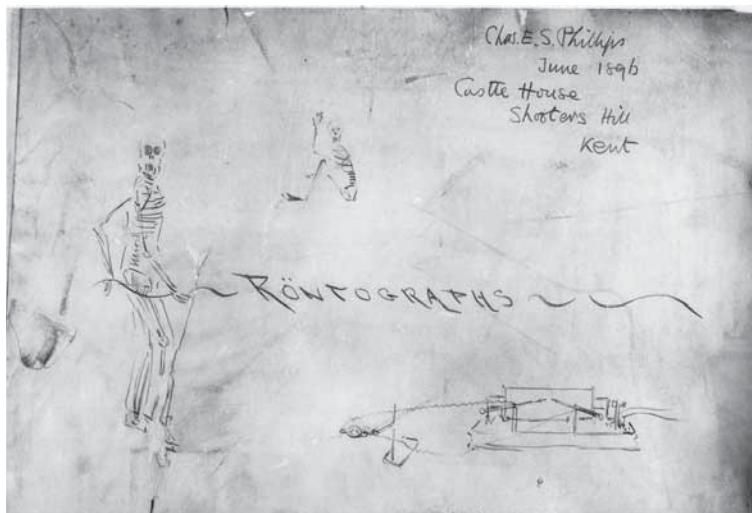 Chas. E. S. Phillips
June 1896
Castle House
Shooters Hill
Kent
RÖNTOGRAPHS